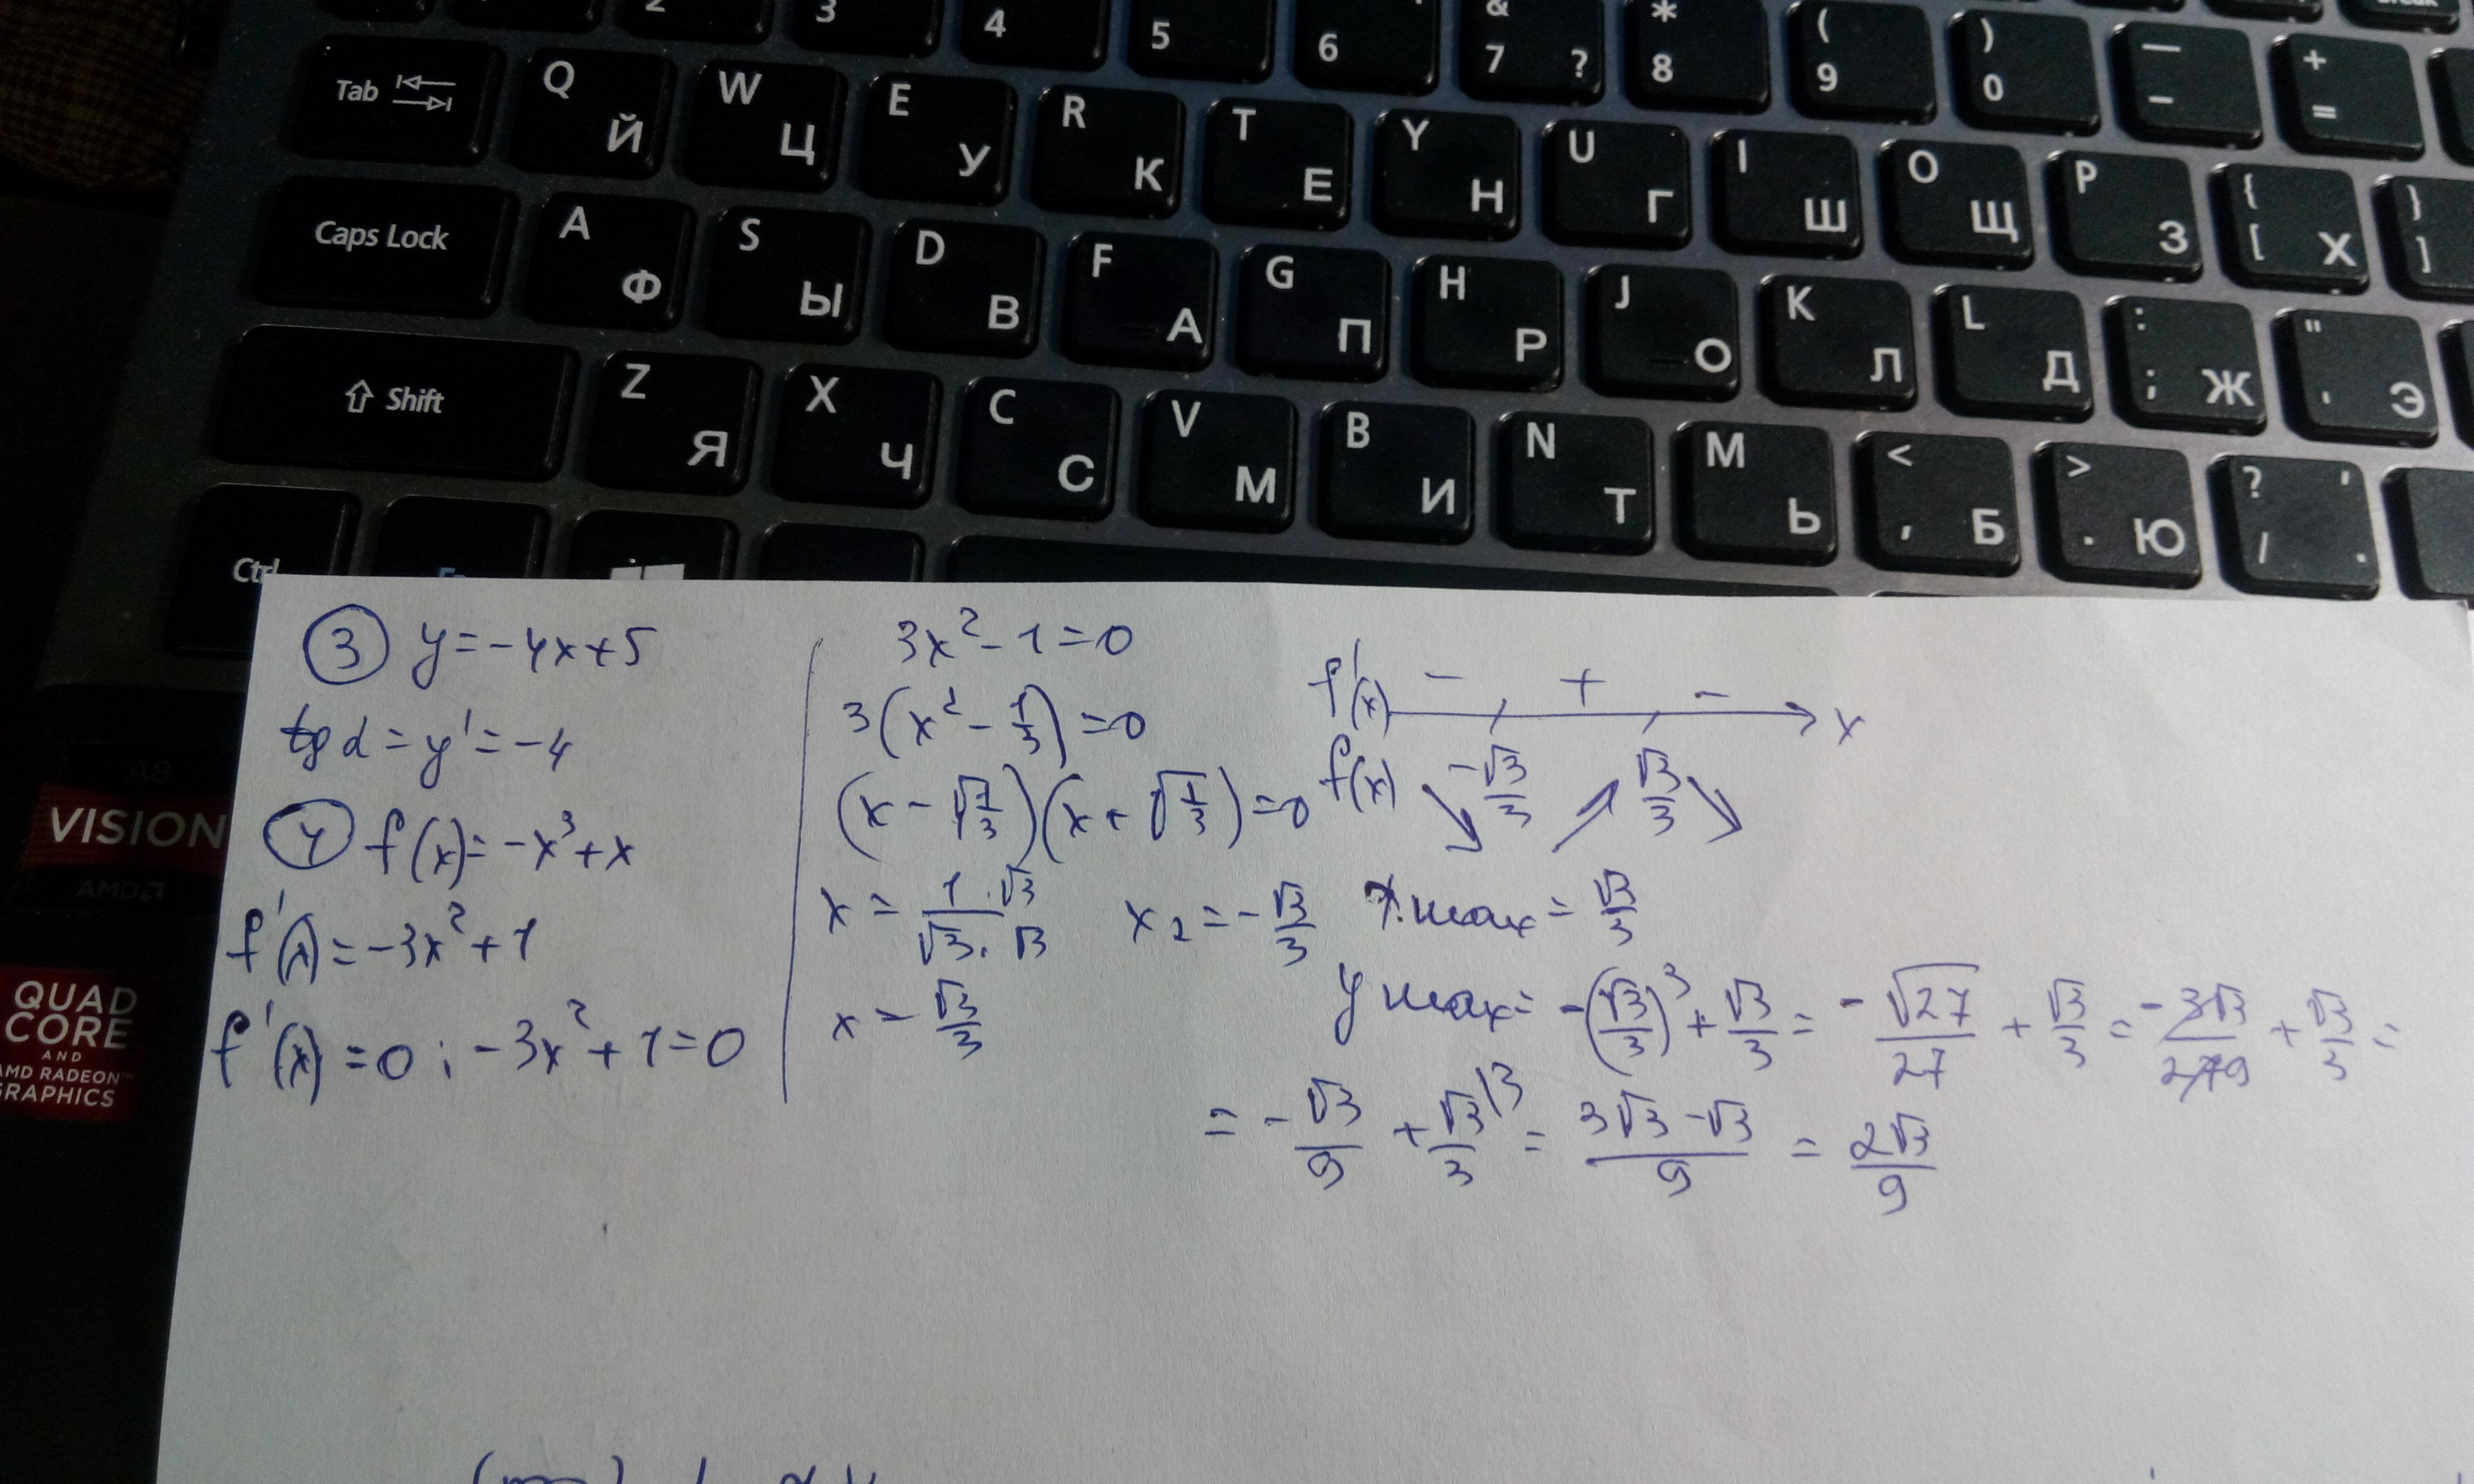 2 3 4 5 6 & 7 ? * 8 ( 9 ) 0 — - + =
Tab Q Й W Ц E У R К T Е Y Н U Г I Ш O Щ P З { [ Х } ]
Caps Lock A Ф S Ы D В F А G П H Р J О K Л L Д : ; Ж " ' Э
⇧ Shift Z Я X Ч C С V М B И N Т M Ь < , Б > . Ю ? / ' .
Ctrl
A8
VISION
AMD
QUAD
CORE
AND
AMD RADEON™
GRAPHICS
③ y=-4x+5
tg α = y' = -4
④ f(x)=-x³+x
f'(x)=-3x²+1
f'(x)=0; -3x²+1=0
3x²-1=0
3(x²-1/3)=0
(x-√1/3)(x+√1/3)=0
x = 1·√3/√3·√3 x₂=-√3/3
x = √3/3
f'(x) - + - x
f(x) ↘ -√3/3 ↗ √3/3 ↘
x max = √3/3
y max = -(√3/3)³+√3/3 = -√27/27+√3/3 = -3√3/27 9+√3/3 =
= -√3/9+√3/3\3 = 3√3-√3/9 = 2√3/9